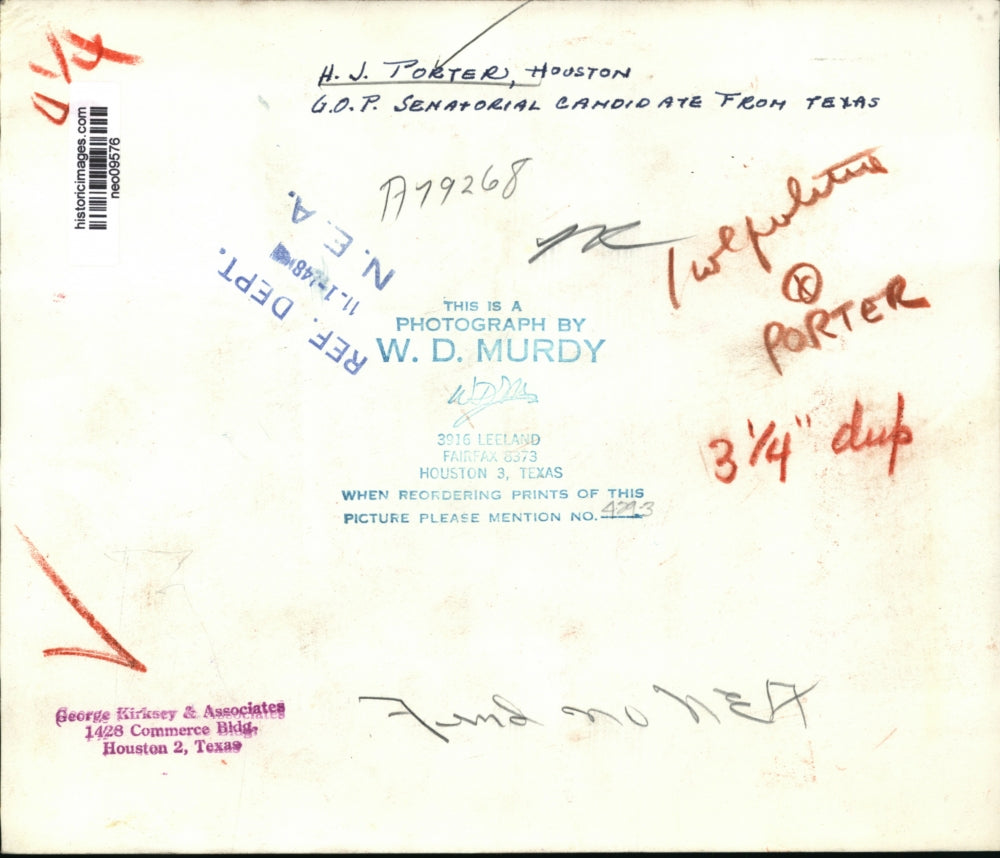 H. J. PORTER, HOUSTON
G.O.P. SENATORIAL CANDIDATE FROM TEXAS
historicimages.com
neo09576
A79268
N. E. A.
11-1-48
REF. DEPT.
PORTER
3 1/4" dup
THIS IS A
PHOTOGRAPH BY
W. D. MURDY
3916 LEELAND
FAIRFAX 8373
HOUSTON 3, TEXAS
WHEN REORDERING PRINTS OF THIS
PICTURE PLEASE MENTION NO.
George Kirksey & Associates
1428 Commerce Bldg.
Houston 2, Texas
NEA